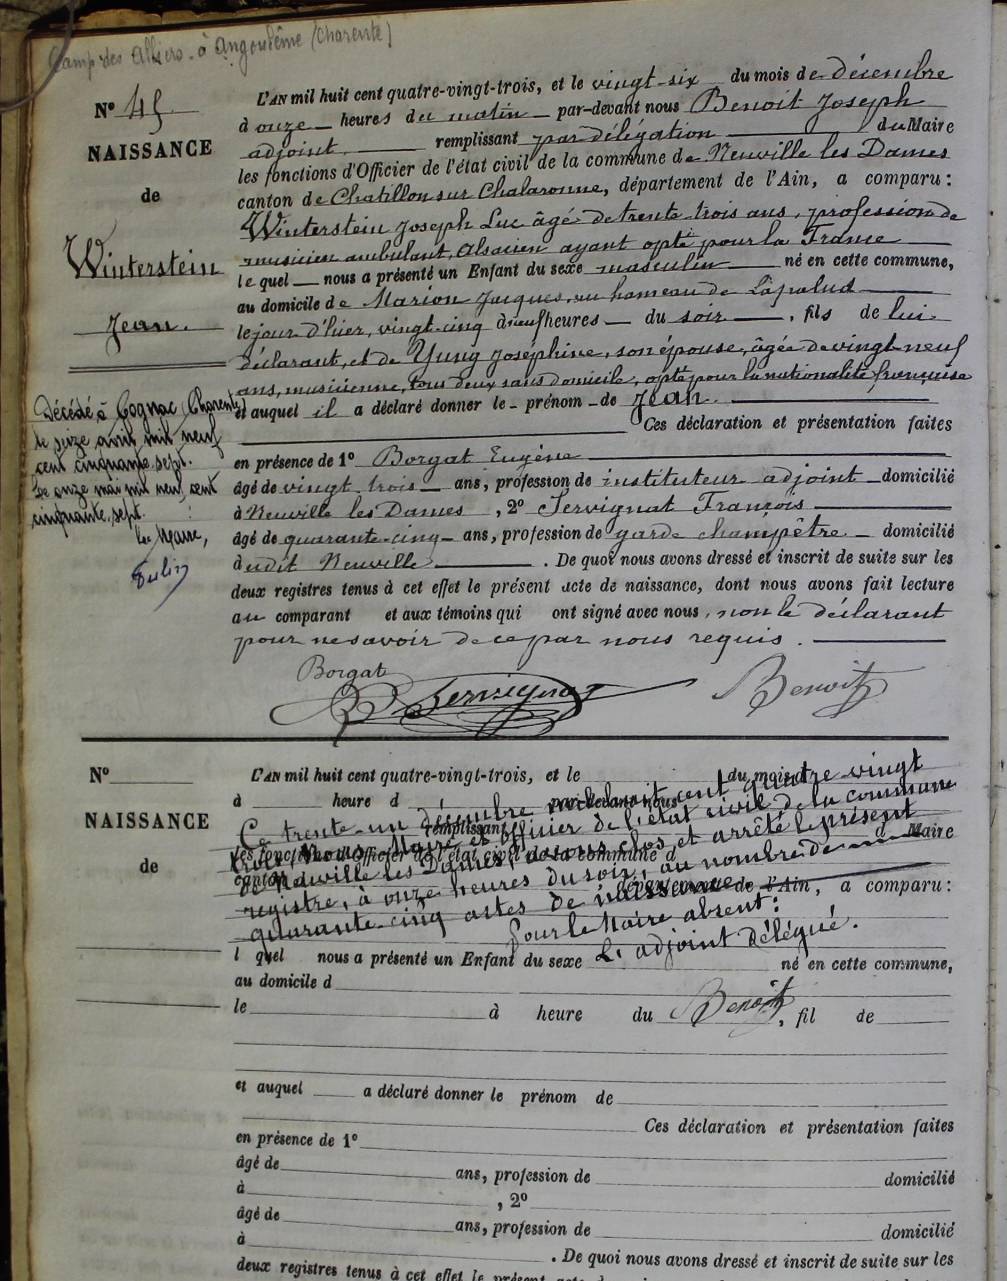 Camp des Alliers - à Angoulême (Charente)
N° 45
NAISSANCE
de
Winterstein
Jean.
L'AN mil huit cent quatre-vingt-trois, et le vingt-six du mois de décembre
à onze heures du matin par-devant nous Benoit Joseph
adjoint remplissant par délégation du Maire
les fonctions d'Officier de l'état civil de la commune de Neuville les Dames
canton de Chatillon sur Chalaronne, département de l'Ain, a comparu :
Winterstein Joseph Luc âgé de trente trois ans, profession de
musicien ambulant, Alsacien ayant opté pour la France
le quel nous a présenté un Enfant du sexe masculin né en cette commune,
au domicile de Marion Jacques, au hameau de Lapalud
le jour d'hier, vingt-cinq à neuf heures du soir, fils de lui
déclarant, et de Yung Joséphine, son épouse, âgée de vingt-neuf
ans, musicienne, tous deux sans domicile, opté pour la nationalité française
et auquel il a déclaré donner le prénom de Jean.
Ces déclaration et présentation faites
en présence de 1° Borgat Eugène
âgé de vingt trois ans, profession de instituteur adjoint domicilié
à Neuville les Dames, 2° Servignat François
âgé de quarante-cinq ans, profession de garde champêtre domicilié
à udit Neuville. De quoi nous avons dressé et inscrit de suite sur les
deux registres tenus à cet effet le présent acte de naissance, dont nous avons fait lecture
au comparant et aux témoins qui ont signé avec nous, non le déclarant
pour ne savoir de ce par nous requis.
Borgat Servignat Benoit
Décédé à Cognac (Charente)
le seize avril mil neuf
cent cinquante sept.
Le onze mai mil neuf cent
cinquante sept.
Le Maire,
N°
NAISSANCE
de
L'AN mil huit cent quatre-vingt-trois, et le du mois d
à heure d par-devant nous
remplissant d Maire
les fonctions d'Officier de l'état civil de la commune d
canton département de l'Ain, a comparu :
Ce trente-un décembre mil huit cent quatre vingt
trois Nous, Maire et officier de l'état civil de la commune
de Neuville les Dames, avons clos et arrêté le présent
registre, à onze heures du soir, au nombre de
quarante-cinq actes de naissance
Pour le Maire absent :
L'adjoint délégué.
Benoit
l quel nous a présenté un Enfant du sexe né en cette commune,
au domicile d
le à heure du , fil de
et auquel a déclaré donner le prénom de
Ces déclaration et présentation faites
en présence de 1°
âgé de ans, profession de domicilié
à , 2°
âgé de ans, profession de domicilié
à . De quoi nous avons dressé et inscrit de suite sur les
deux registres tenus à cet effet le présent acte de